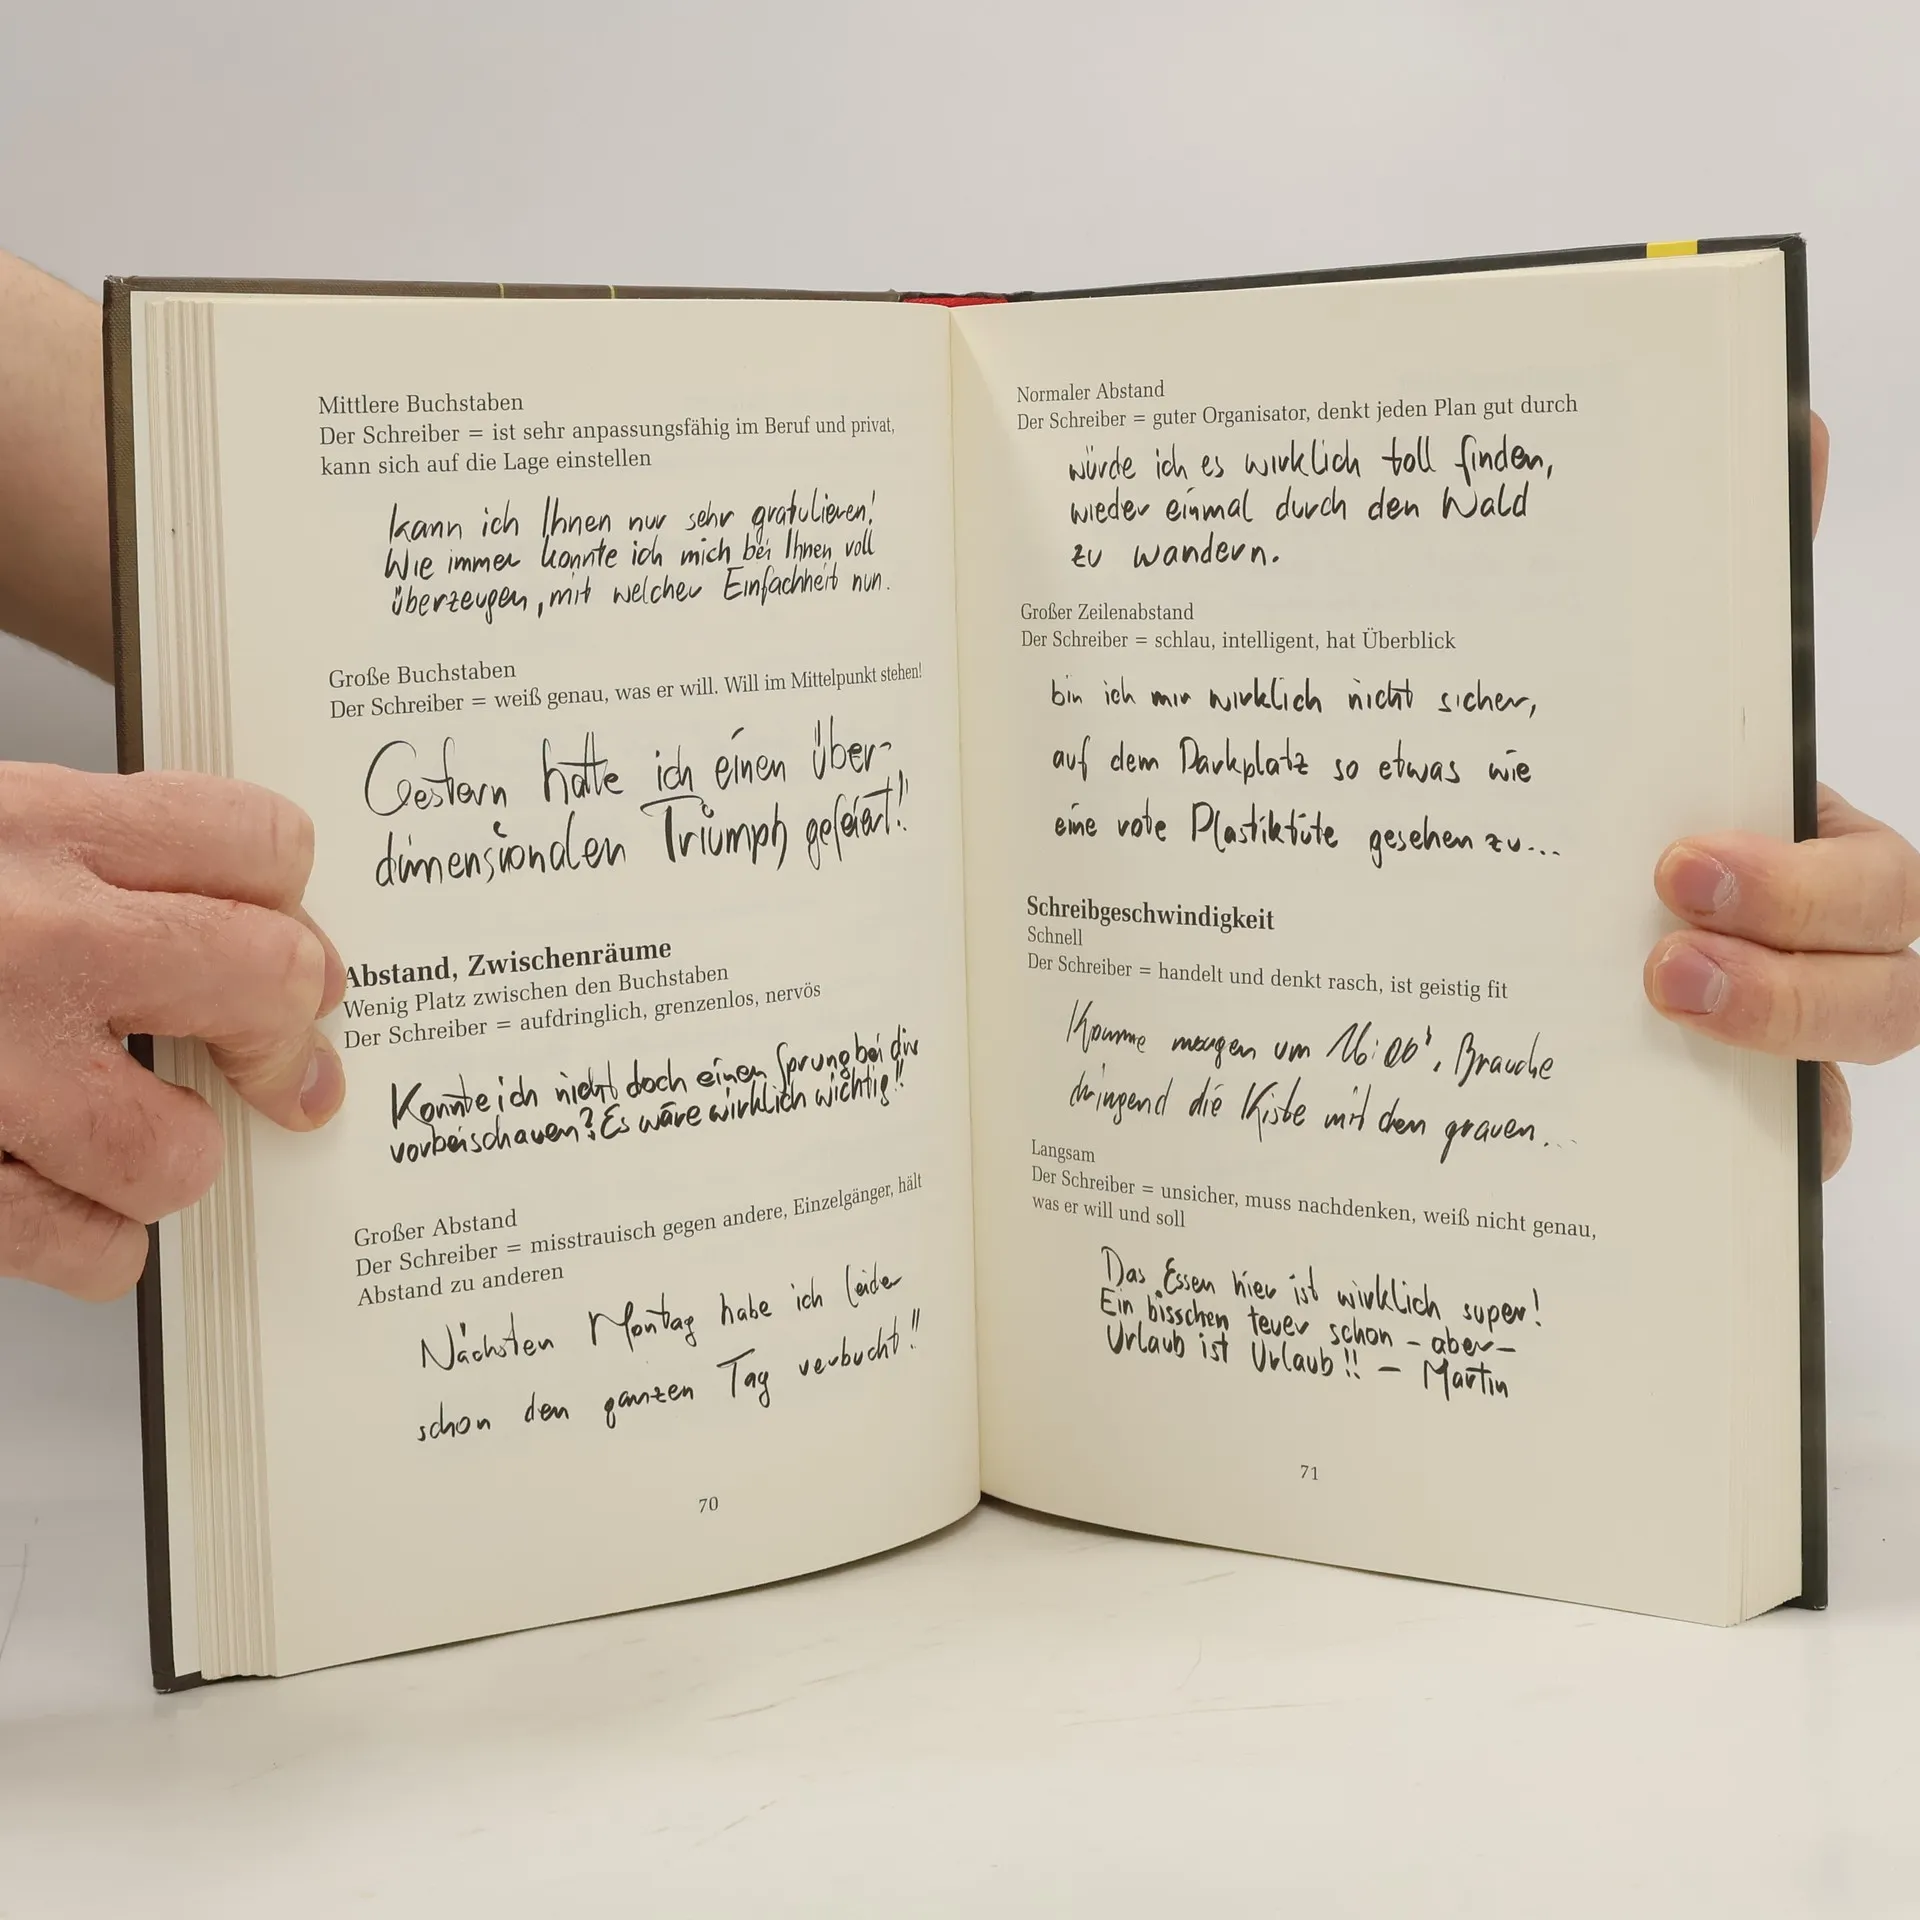 Mittlere Buchstaben
Der Schreiber = ist sehr anpassungsfähig im Beruf und privat,
kann sich auf die Lage einstellen
kann ich Ihnen nur sehr gratulieren!
Wie immer konnte ich mich bei Ihnen voll
überzeugen, mit welcher Einfachheit nun.
Große Buchstaben
Der Schreiber = weiß genau, was er will. Will im Mittelpunkt stehen!
Gestern hatte ich einen über-
dimensionalen Triumph gefeiert!!
Abstand, Zwischenräume
Wenig Platz zwischen den Buchstaben
Der Schreiber = aufdringlich, grenzenlos, nervös
Könnte ich nicht doch einen Sprung bei dir
vorbeischauen? Es wäre wirklich wichtig!!
Großer Abstand
Der Schreiber = misstrauisch gegen andere, Einzelgänger, hält
Abstand zu anderen
Nächsten Montag habe ich leider
schon den ganzen Tag verbucht!!
70
Normaler Abstand
Der Schreiber = guter Organisator, denkt jeden Plan gut durch
würde ich es wirklich toll finden,
wieder einmal durch den Wald
zu wandern.
Großer Zeilenabstand
Der Schreiber = schlau, intelligent, hat Überblick
bin ich mir wirklich nicht sicher,
auf dem Parkplatz so etwas wie
eine rote Plastiktüte gesehen zu...
Schreibgeschwindigkeit
Schnell
Der Schreiber = handelt und denkt rasch, ist geistig fit
Komme morgen um 16:00, Brauche
dringend die Kiste mit dem grauen...
Langsam
Der Schreiber = unsicher, muss nachdenken, weiß nicht genau,
was er will und soll
Das Essen hier ist wirklich super!
Ein bisschen teuer schon – aber –
Urlaub ist Urlaub!! – Martin
71